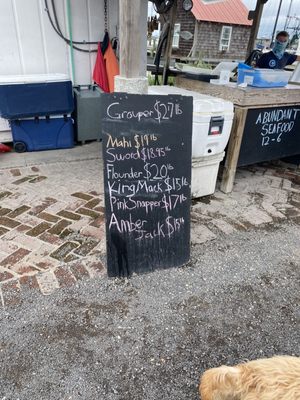 Grouper $27 lb
Mah $19 lb
Sword $18.95 lb
Flounder $20 lb
King Mack $15 lb
Pink Snapper $17 lb
Amber Jack $15 lb
ABUNDANT
SEAFOOD
12-6